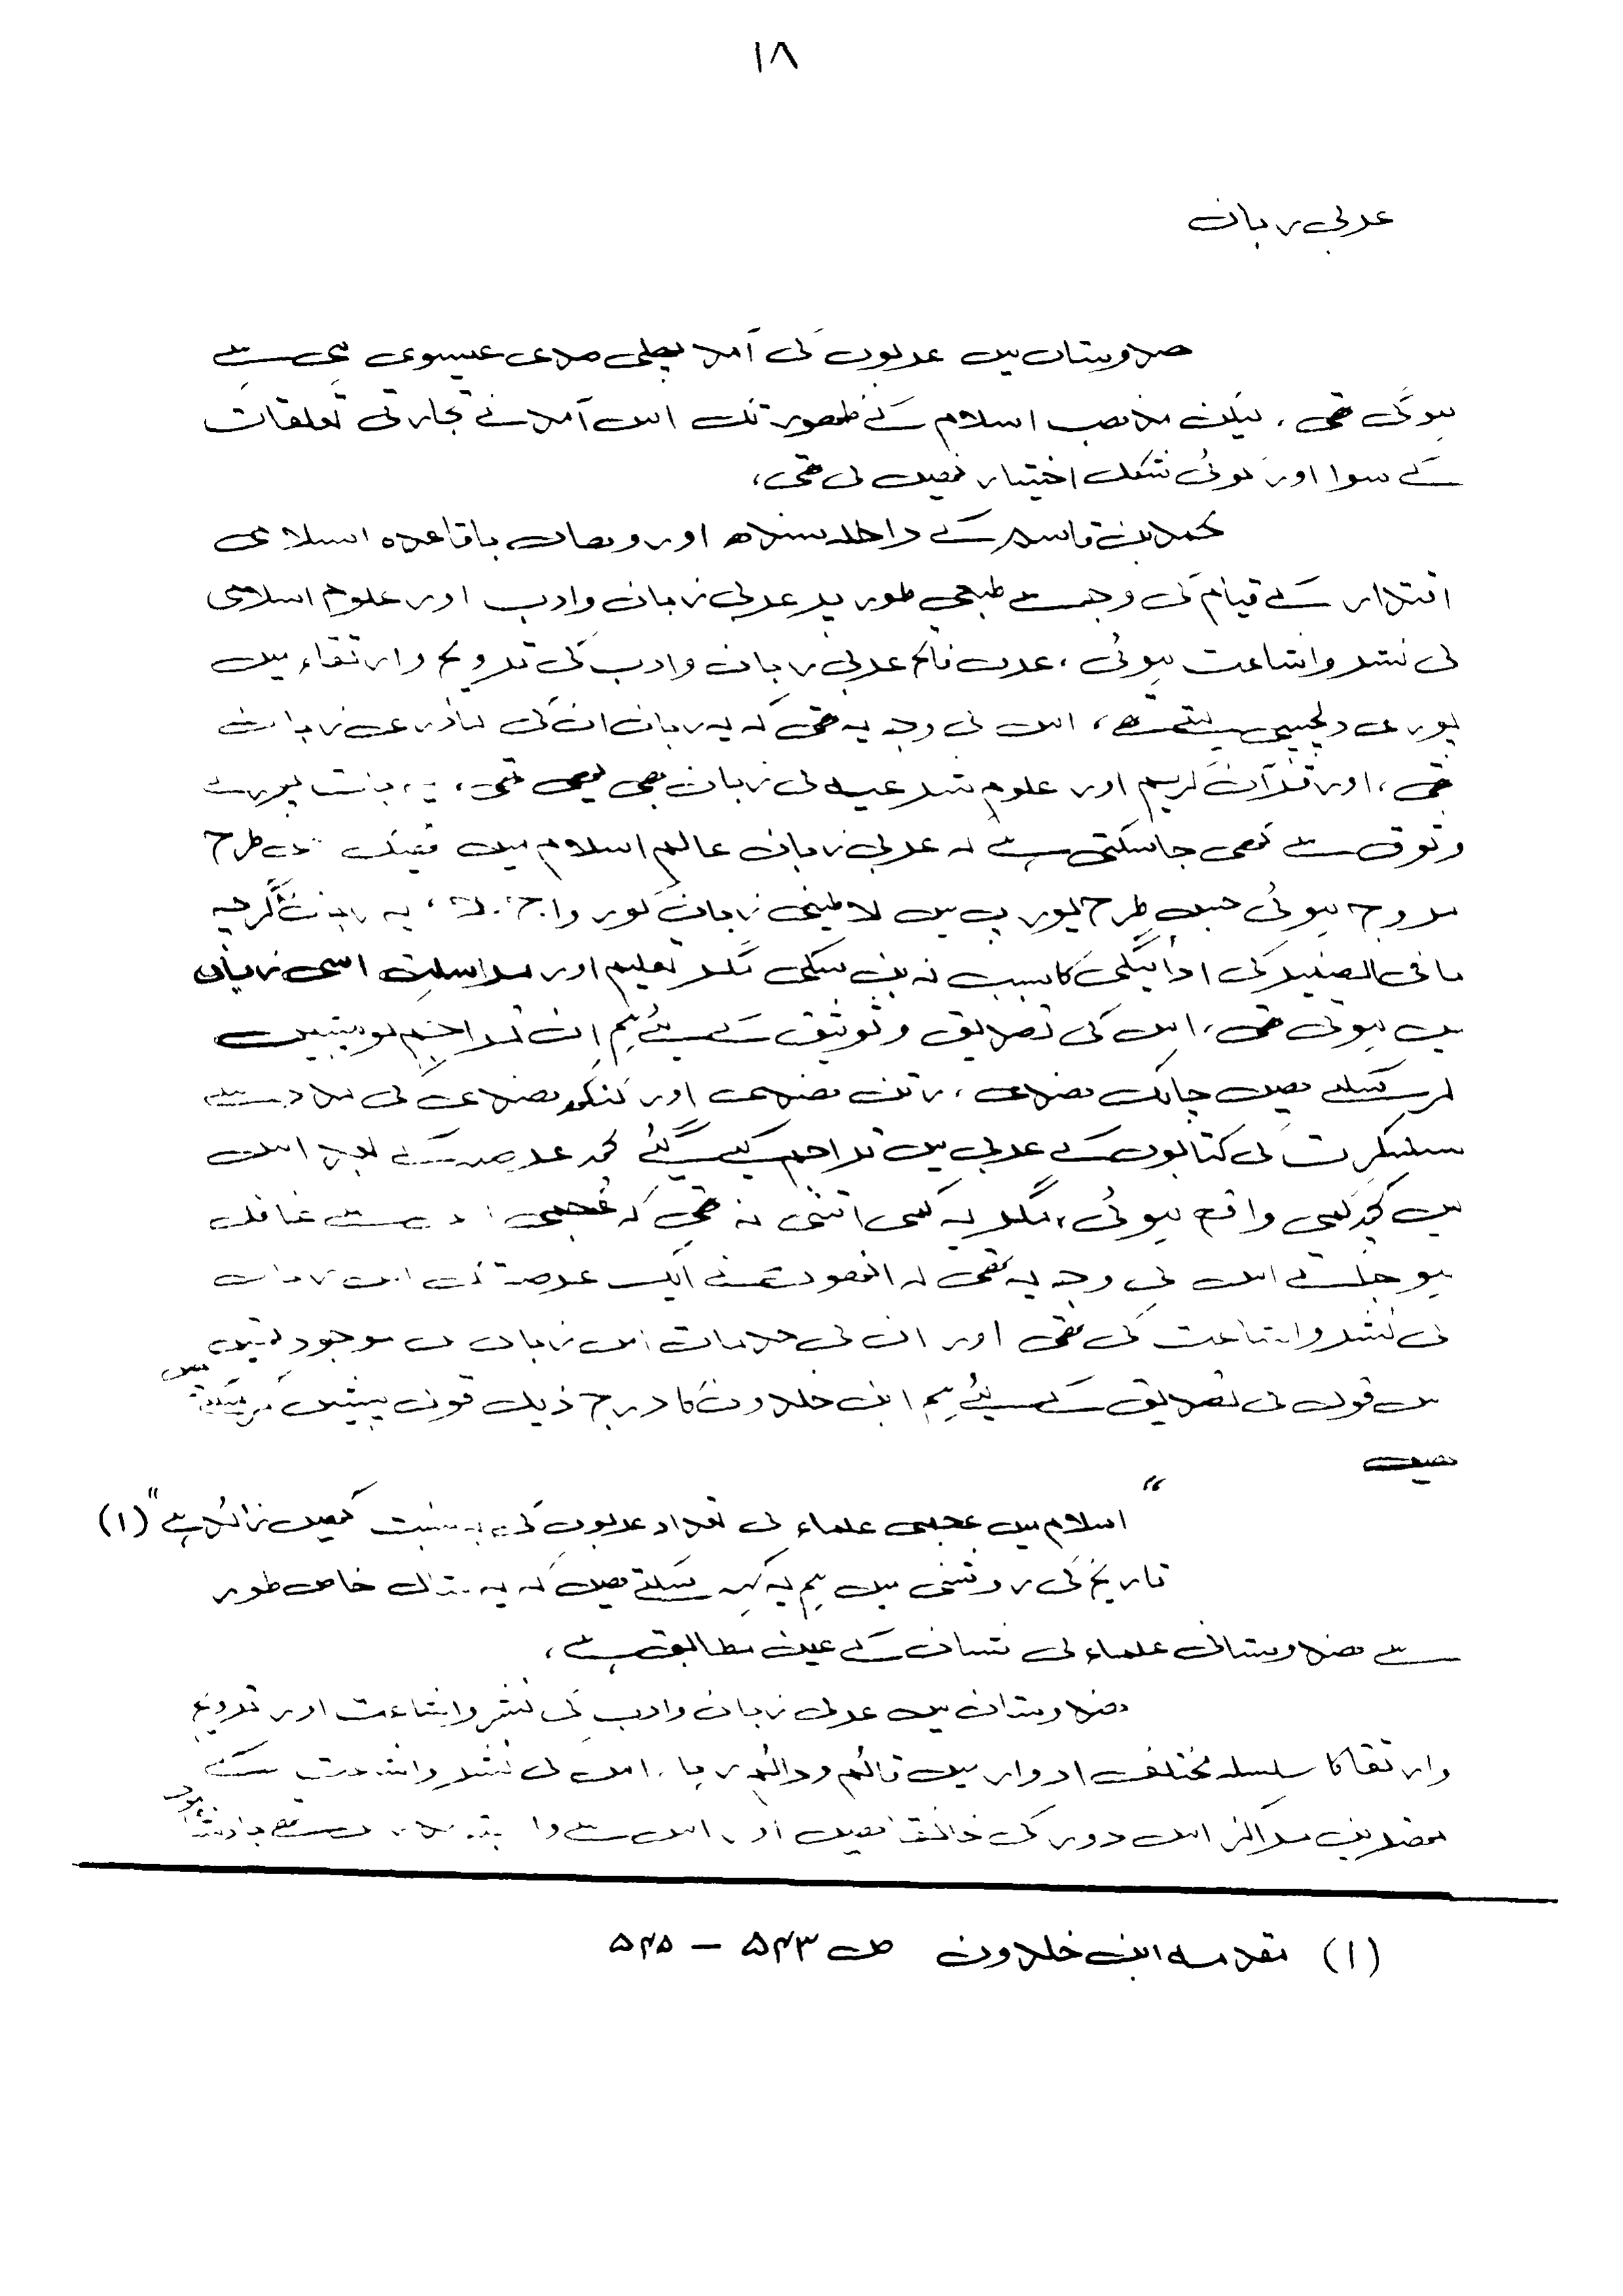 ۱۸
عربی زبان
ہندوستان میں عربوں کی آمد پہلی صدی عیسوی ہی سے
ہوگی تھی، لیکن مذہب اسلام کے ظہور تک اس آمد نے تجارتی تعلقات
کے سوا اور کوئی شکل اختیار نہیں کی تھی،
محمد بن قاسم کے داخلہ سندھ اور وہاں باقاعدہ اسلامی
اقتدار کے قیام کی وجہ سے طبعی طور پر عربی زبان وادب اور علوم اسلامی
کی نشر واشاعت ہوئی، عرب فاتح عربی زبان وادب کی ترویج وارتقاء میں
پوری دلچسپی لیتے تھے، اس کی وجہ یہ تھی کہ یہ زبان ان کی مادری زبان
تھی، اور قرآن کریم اور علوم شرعیہ کی زبان بھی یہی تھی، یہ بات پورے
وثوق سے کہی جاسکتی ہے کہ عربی زبان عالم اسلام میں ٹھیک اسی طرح
مروج ہوئی جس طرح یورپ میں لاطینی زبان کو رواج ملا، یہ زبان اگرچہ
مافی الضمیر کی ادائیگی کا سبب نہ بن سکی مگر تعلیم اور مراسلت اسی زبان
میں ہوتی تھی، اس کی تصدیق وتوثیق کے لئے ہم ان تراجم کو پیش
کرسکتے ہیں چانک ہندی، رتن ہندی اور کنکہ ہندی کی مدد سے
سنسکرت کی کتابوں کے عربی میں تراجم کیے گئے کچھ عرصہ کے بعد اس
میں کچھ کمی واقع ہوئی، مگر یہ کمی اتنی نہ تھی کہ عجمی سے غافل
ہوجاتے اس کی وجہ یہ تھی کہ انھوں نے ایک عرصہ تک اس زبان
کی نشر واشاعت کی تھی اور ان کی خدمات اس زبان میں موجود تھیں
اس قول کی تصدیق کے لئے ہم ابن خلدون کا درج ذیل قول پیش کرسکتے ہیں
"اسلام میں عجمی علماء کی تعداد عربوں کی بہ نسبت کہیں زائد ہے" (۱)
تاریخ کی روشنی میں ہم یہ کہہ سکتے ہیں کہ یہ قول خاص طور
سے ہندوستانی علماء کی شان کے عین مطابق ہے،
ہندوستان میں عربی زبان وادب کی نشر واشاعت اور ترویج
وارتقا کا سلسلہ مختلف ادوار میں قائم ودائم رہا، اس کی نشر واشاعت کے
بہترین مراکز اس دور کی خانقاہیں اور اس سے وابستہ مدارس تھے
(۱) مقدمہ ابن خلدون ص ۵۴۳ – ۵۴۵